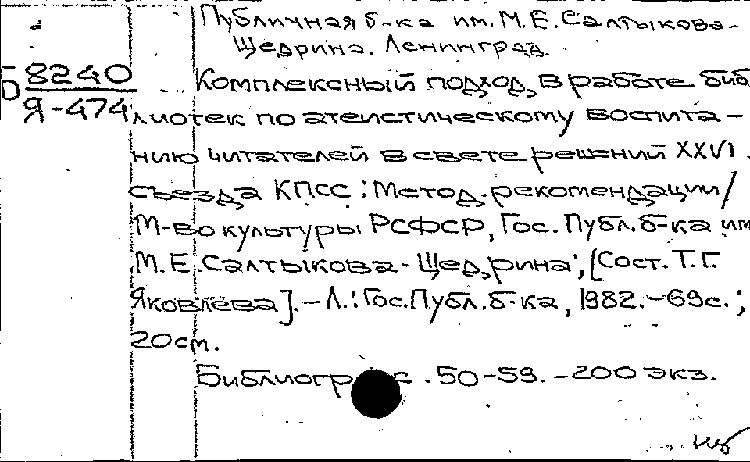 Публичная б-ка им. М.Е. Салтыкова-
Щедрина. Ленинград.
Б 8240
Я-474
Комплексный подход в работе биб
лиотек по атеистическому воспита-
нию читателей в свете решений XXVI
съезда КПСС: Метод. рекомендации/
М-во культуры РСФСР, Гос. Публ. б-ка им
М.Е. Салтыкова-Щедрина; [Сост. Т.Г.
Яковлева]. - Л.: Гос. Публ. б-ка, 1982. - 69с.;
20см.
Библиогр с. 50-59. - 200 экз.